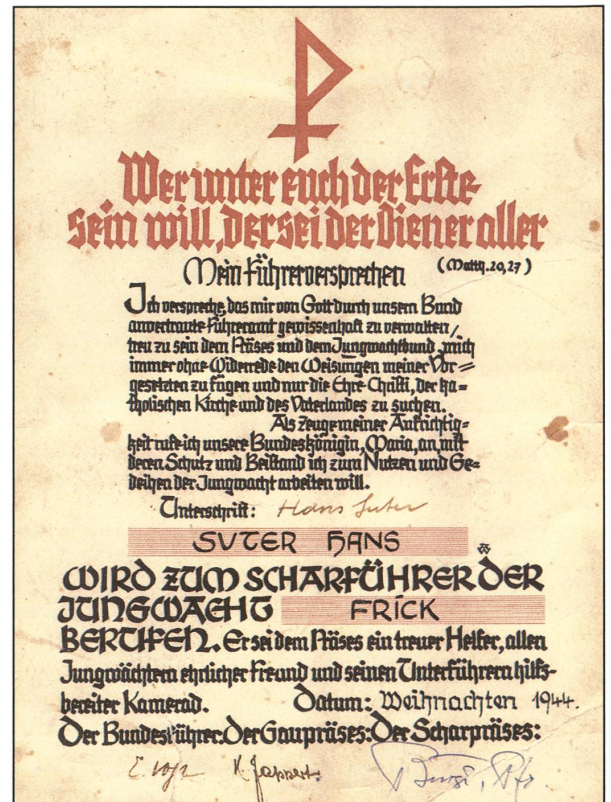 Wer unter euch der Erste
sein will, der sei der Diener aller
(Matth. 20,27)
Mein Führerversprechen
Ich verspreche, das mir von Gott durch unsern Bund
anvertraute Führeramt gewissenhaft zu verwalten,
treu zu sein dem Präses und dem Jungwachtbund, mich
immer ohne Widerrede den Weisungen meiner Vor=
gesetzten zu fügen und nur die Ehre Christi, der ka=
tholischen Kirche und des Vaterlandes zu suchen.
Als Zeuge meiner Aufrichtig=
keit rufe ich unsere Bundeskönigin, Maria, an, mit
deren Schutz und Beistand ich zum Nutzen und Ge=
deihen der Jungwacht arbeiten will.
Unterschrift: Hans Suter
SUTER HANS
WIRD ZUM SCHARFÜHRER DER
JUNGWACHT FRICK
BERUFEN. Er sei dem Präses ein treuer Helfer, allen
Jungwächtern ehrlicher Freund und seinen Unterführern hilfs-
bereiter Kamerad. Datum: Weihnachten 1944.
Der Bundesführer: Der Gaupräses: Der Scharpräses: